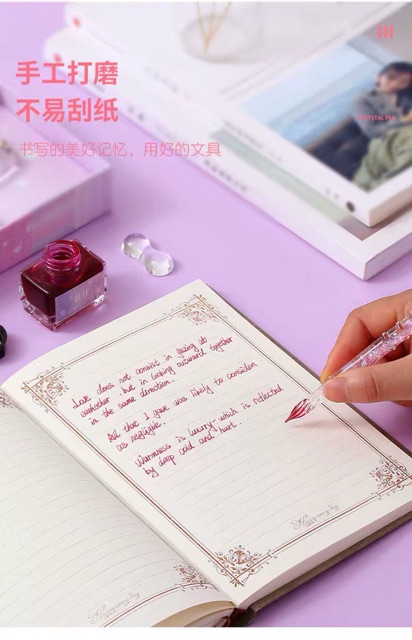 手工打磨
不易刮纸
书写的美好记忆，用好的文具
CRYSTAL PEN
Love does not consist in gazing at
eachother but in looking outward together
in the same direction.
All that I gave was likely to consider
as negligible.
Warmness is luxury which is reflected
by deep cold and hurt..